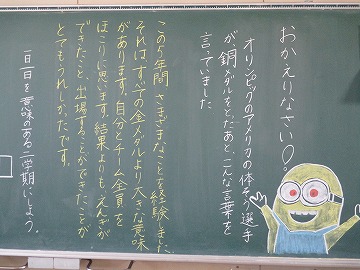 おかえりなさい○.
オリンピックのアメリカの体そう選手
が、銅メダルをとったあと、こんな言葉を
言っていました
この5年間 さまざまなことを経験しました。
それは、すべての金メダルより大きな意味
があります。自分とチーム全員を
ほこりに思います。結果よりも、えんぎが
できたこと、出場することができたことが
とてもうれしかったです。
一日一日を意味のある二学期にしよう。